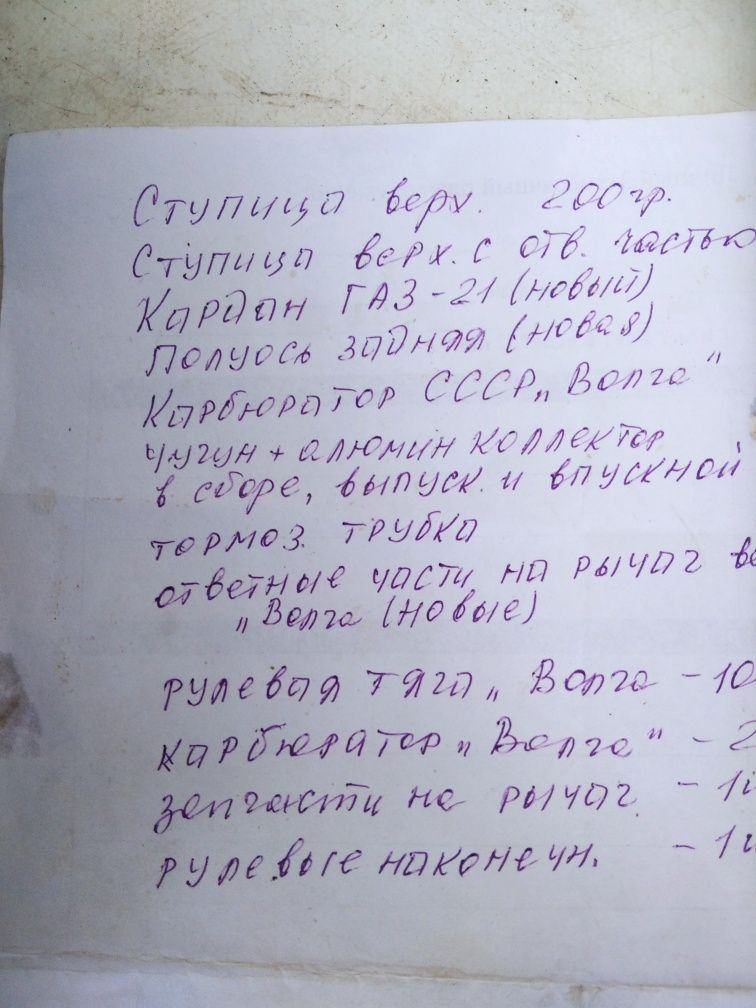 Ступица верх. 200гр.
Ступица верх. с отв. частью
Кардан ГАЗ-21 (новый)
Полуось задняя (новая)
Карбюратор СССР „Волга"
чугун + алюмин коллектор
в сборе, выпуск. и впускной
тормоз. трубка
ответные части на рычаг ве
„Волга (новые)
рулевая тяга „Волга - 10
карбюратор „Волга" - 2
запчасти на рычаг - 1
рулевые наконечн. - 1